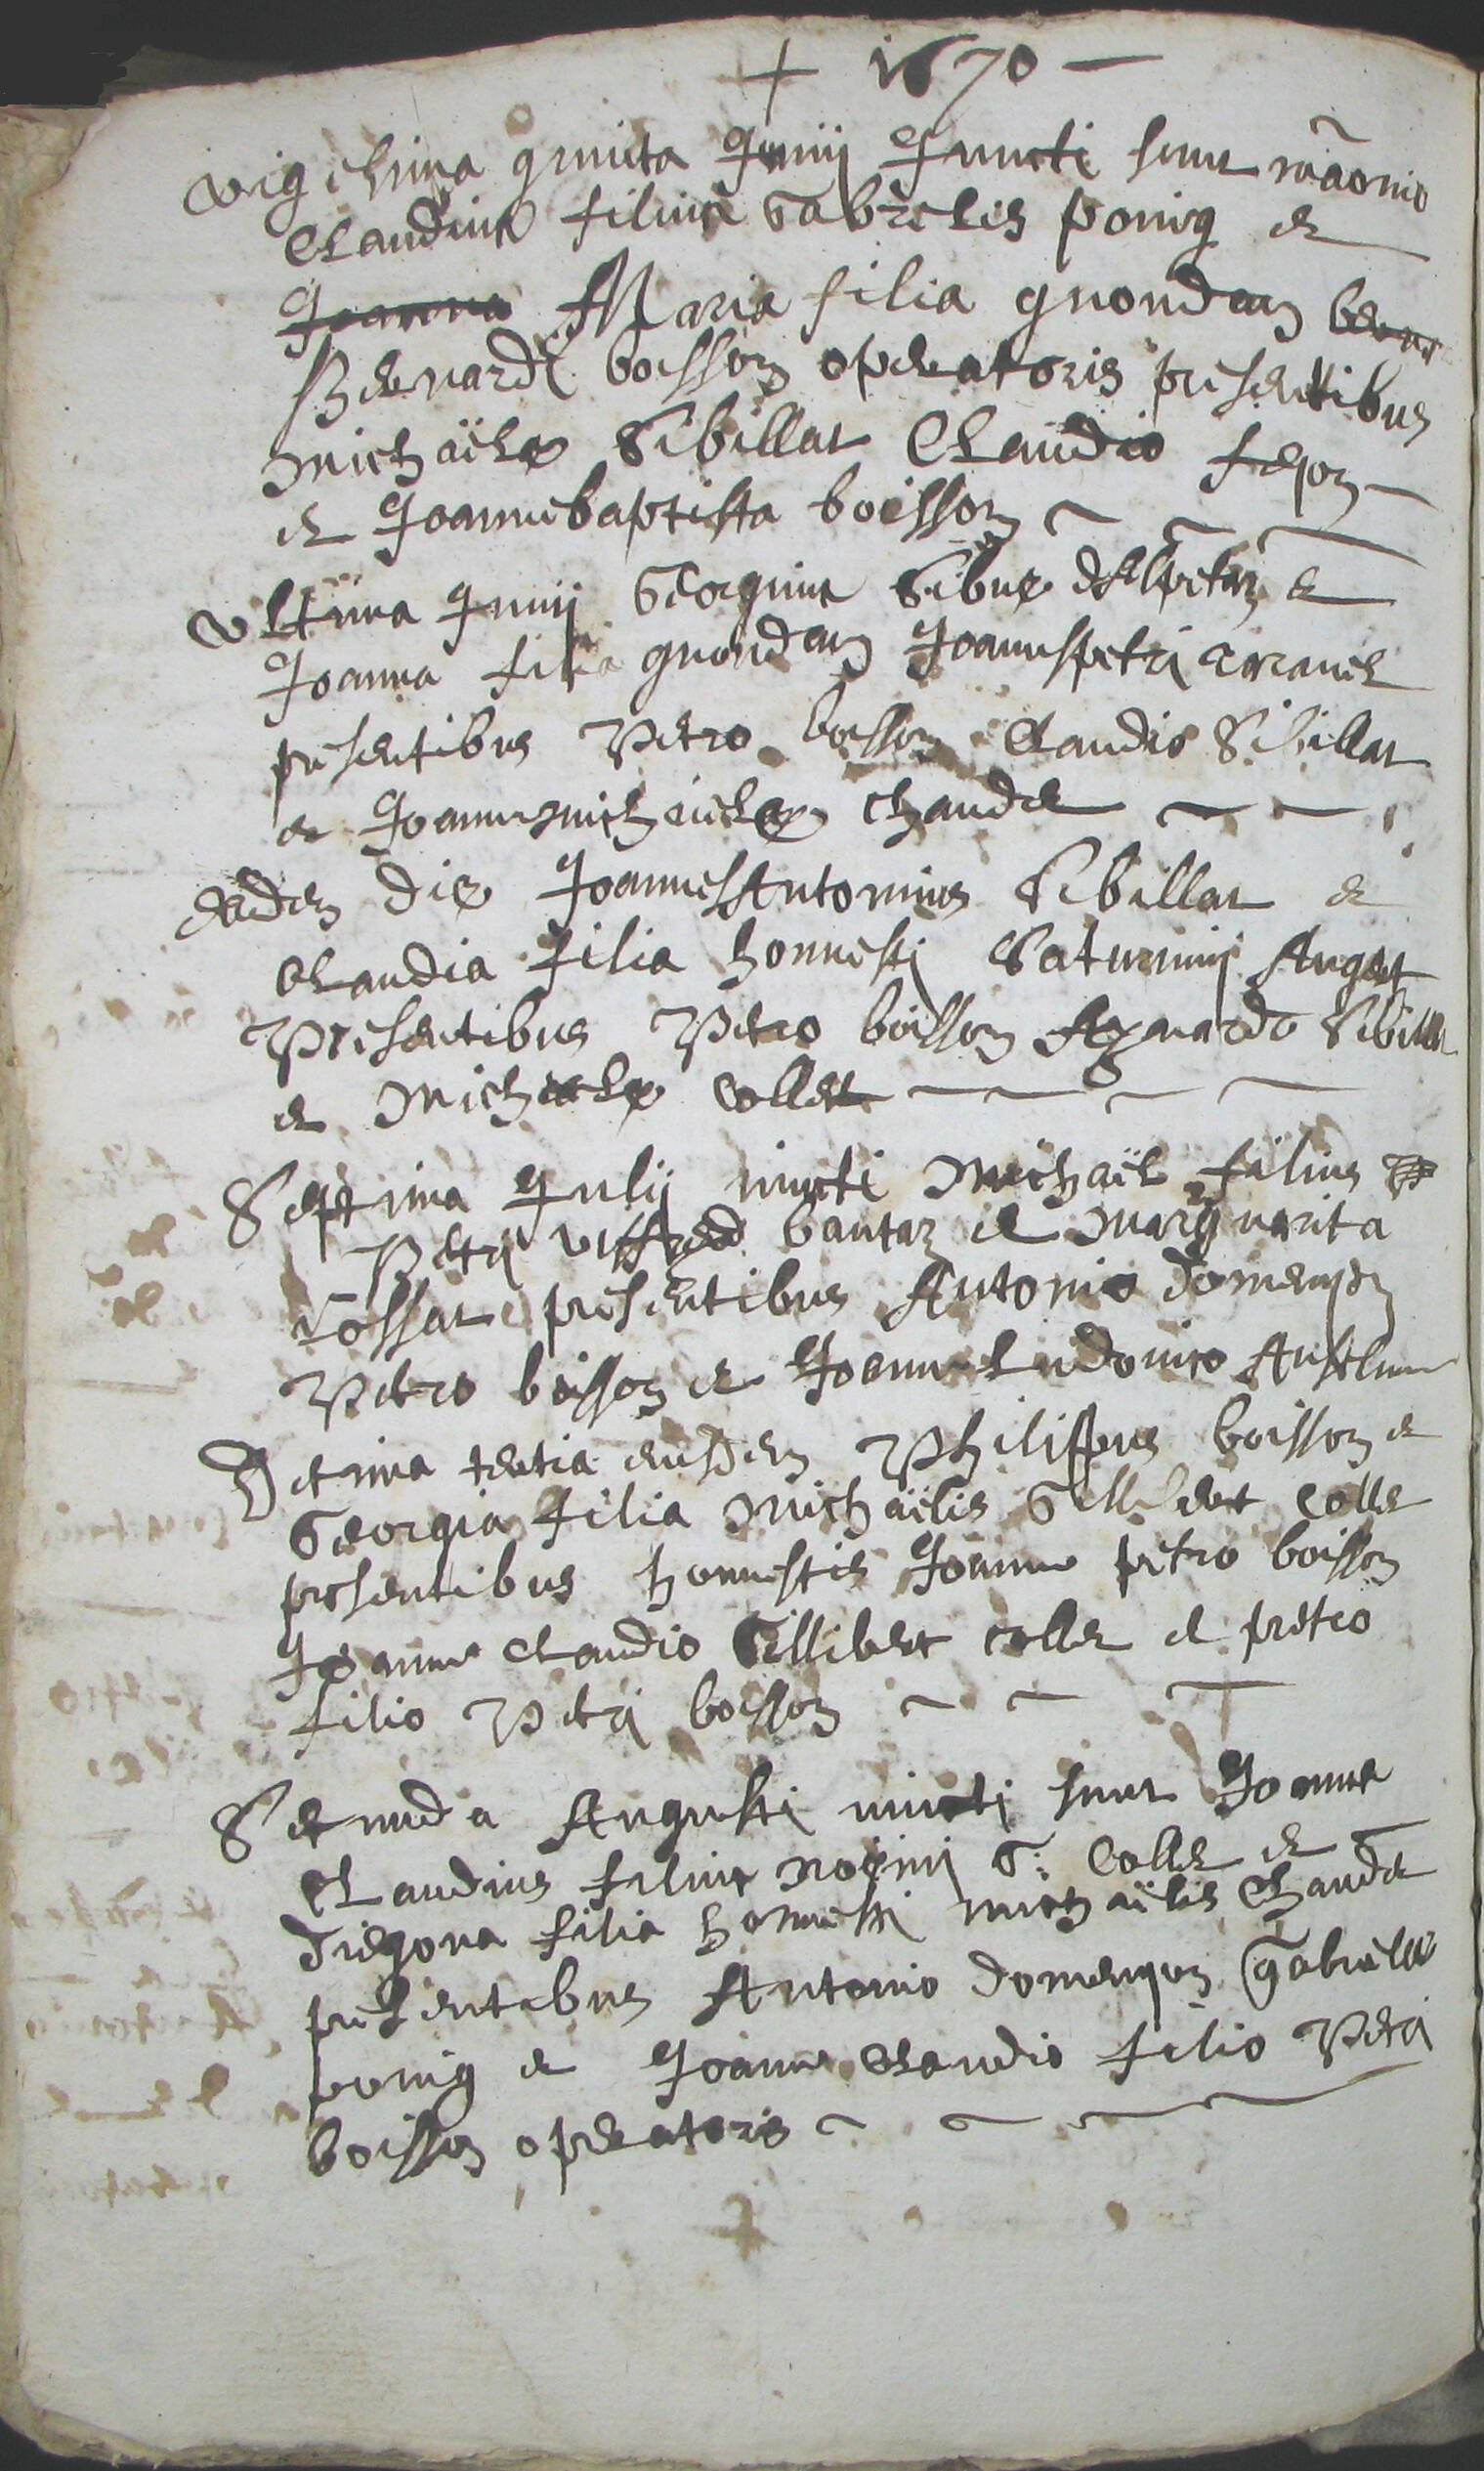 + 1670 —
vigesima quinta Junii Juncti sunt mãonio
Claudius filius Gabrielis poniq et
Joanna Maria filia quondam
Bernardi boisson operatoris presentibus
Michaële Sibillat Claudio
et Joannebaptista boisson
Ultima Junii Georgius et
Joanna filia quondam Joannispetri
presentibus Petro boisson Claudio Sibillat
et Joannemichaele chaudet
eadem die Joannes Antonius Sibillat et
Claudia filia honnesti Saturnini Auget
Presentibus Petro boisson Aynardo Sibillat
et Michaele Collet
Septima Julij iuncti Michaël filius
Petri et Marguarita
Lossat presentibus Antonio domenjon
Petro boisson et Joanne Ludovico Anselme
Decima tertia eiusdem Philippus boisson et
Georgia filia Michaëlis Gillibert Collet
presentibus honnestis Joanne petro boisson
Joanne Claudio Gillibert collet et petro
filio Petri boisson
Secunda Augusti iuncti sunt Joannes
Claudius filius G: Collet et
filia honnesti michaëlis Chaudet
presentibus Antonio domenjon Gabriele
poniq et Joanne Claudio filio Petri
boisson operatoris